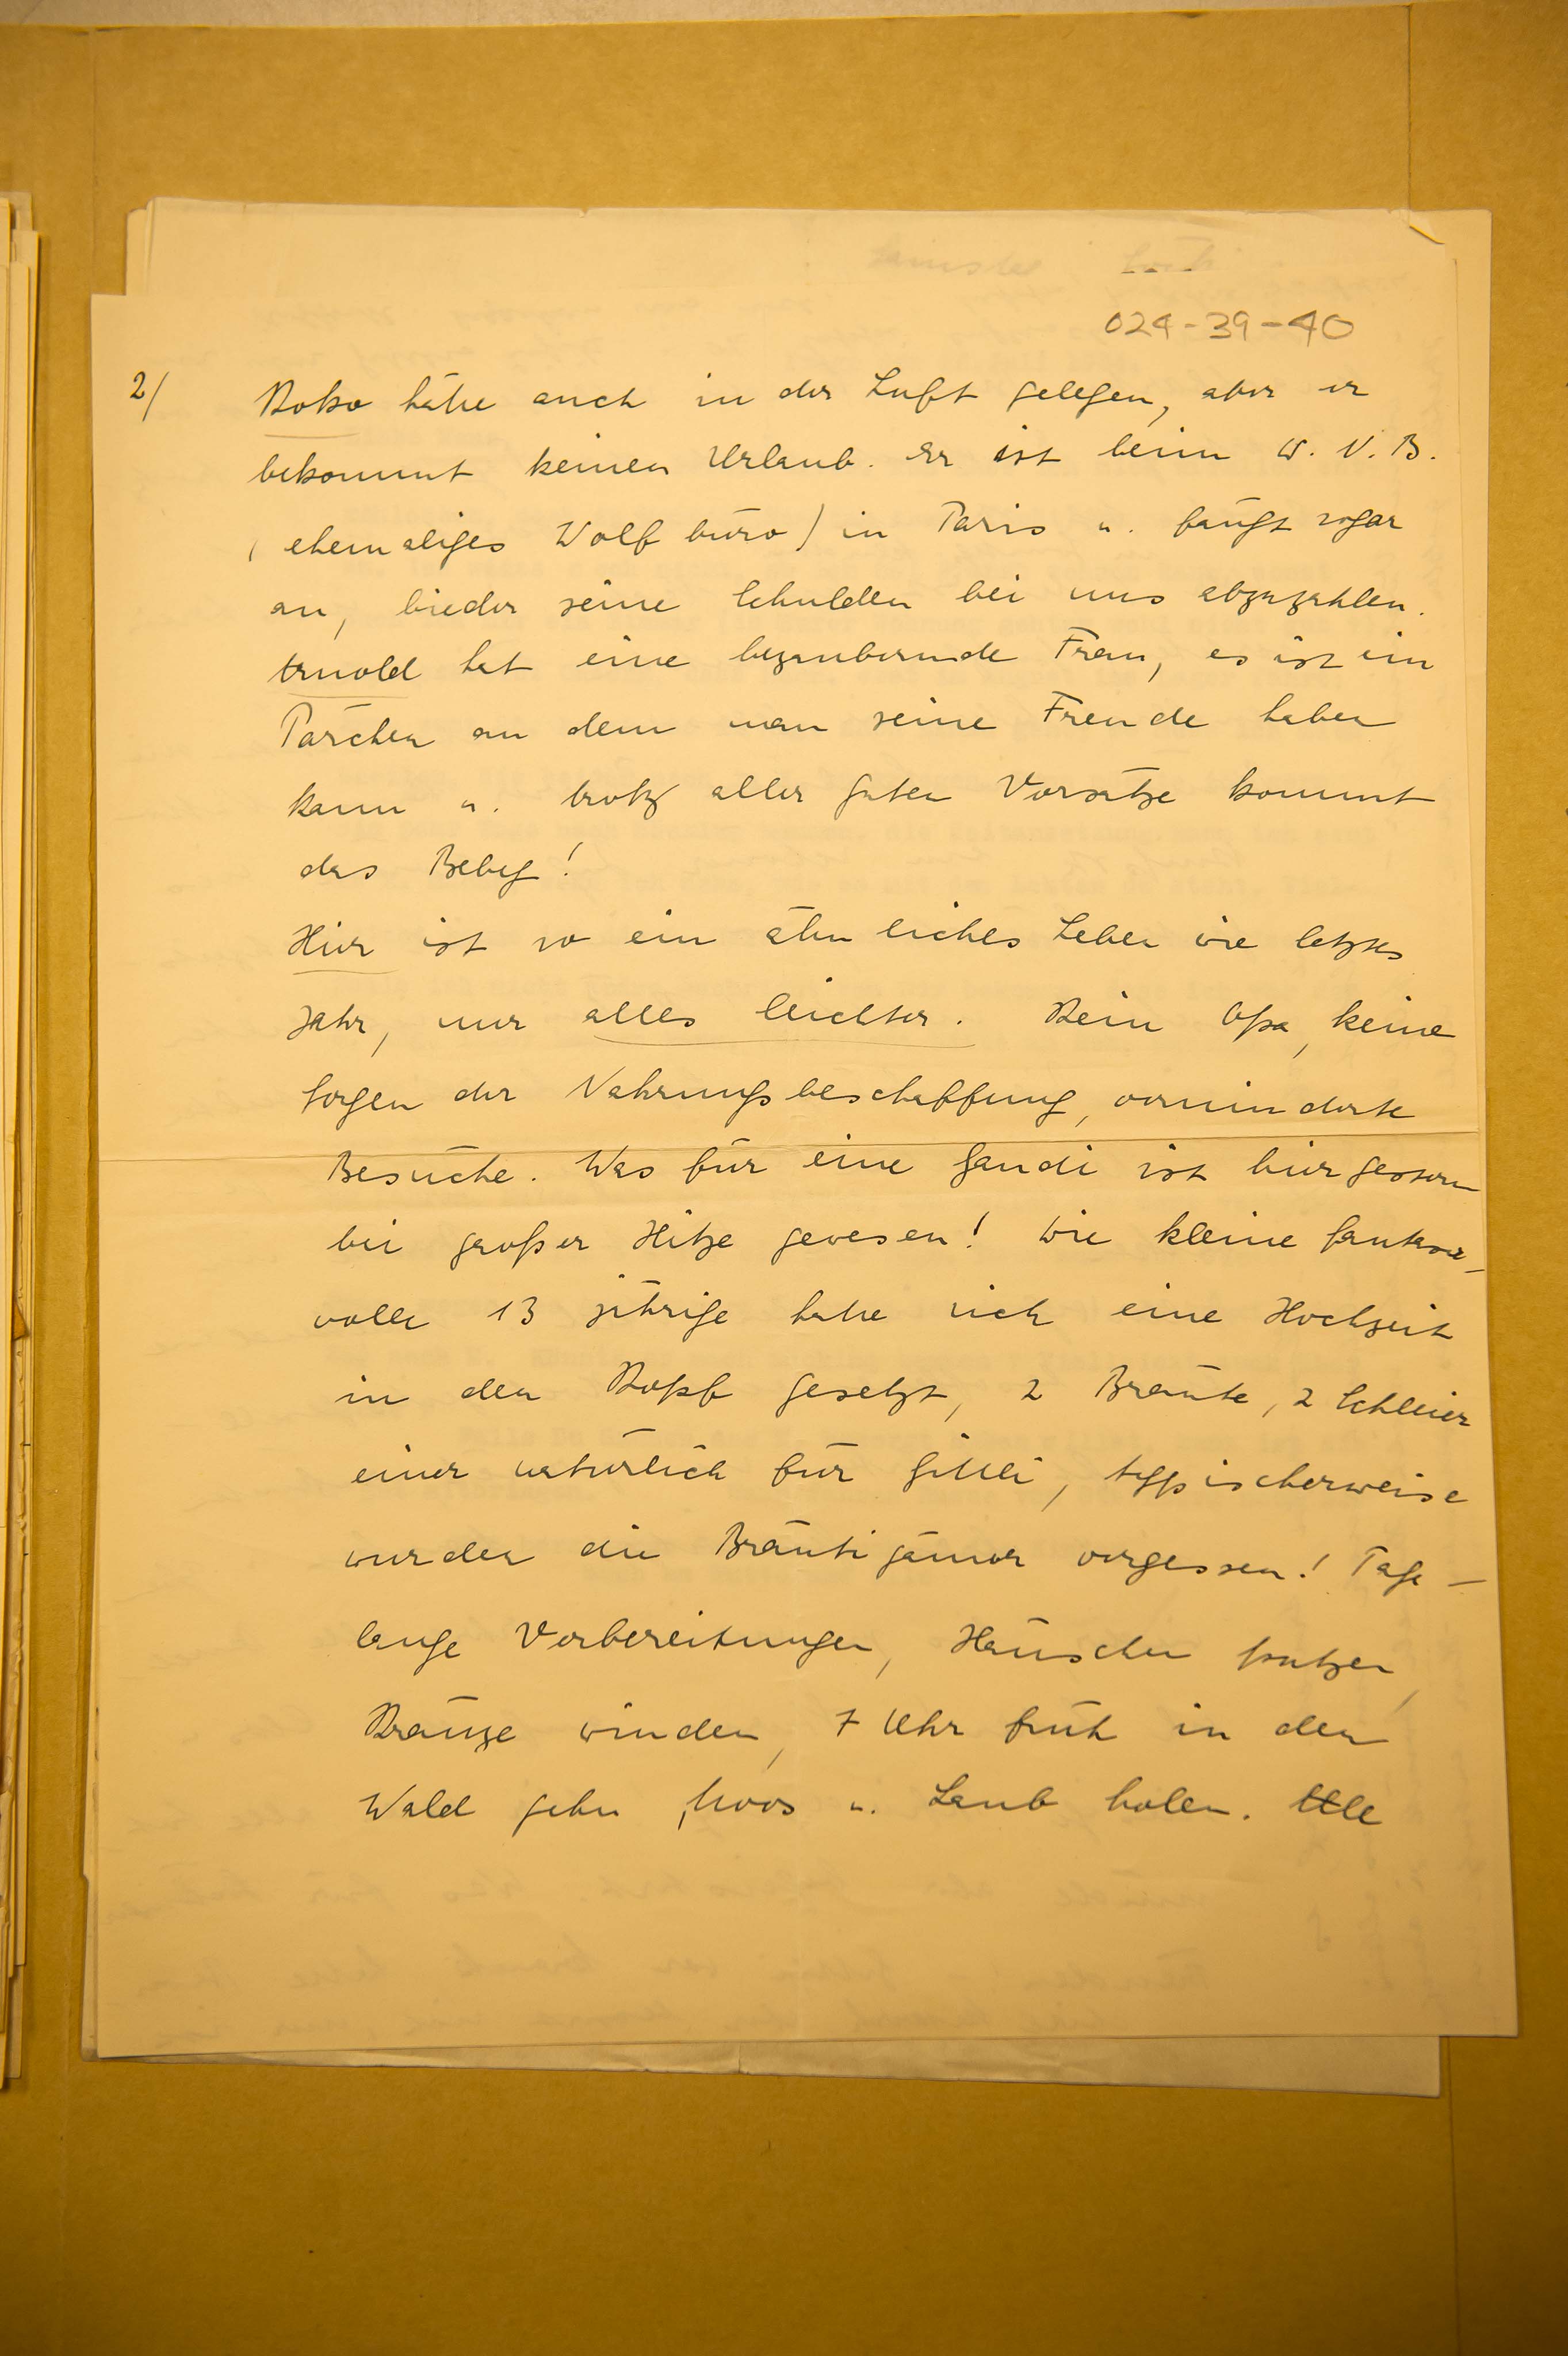 024-39-40
2/
Koko hätte auch in der Luft gelegen, aber er
bekommt keinen Urlaub. Er ist beim W. N. B.
(ehemaliges Wolfbüro) in Paris u. fängt sogar
an, bieder seine Schulden bei uns abzuzahlen.
Arnold hat eine bezaubernde Frau, es ist ein
Pärchen an dem man seine Freude haben
kann u. trotz aller guten Vorsätze kommt
das Beby!
Hier ist so ein ähnliches Leben wie letztes
Jahr, nur alles leichter. Kein Opa, keine
Sorgen der Nahrungsbeschaffung, verminderte
Besuche. Was für eine Gaudi ist hier gestern
bei großer Hitze gewesen! Die kleine fantasie-
volle 13 jährige hatte sich eine Hochzeit
in den Kopf gesetzt, 2 Bräute, 2 Schleier
einer natürlich für Gilli, typischerweise
wurden die Bräutigämer vergessen! Tage-
lange Vorbereitungen, Häuschen putzen,
Kränze winden, 7 Uhr früh in den
Wald gehn, Moos u. Laub holen. Alle